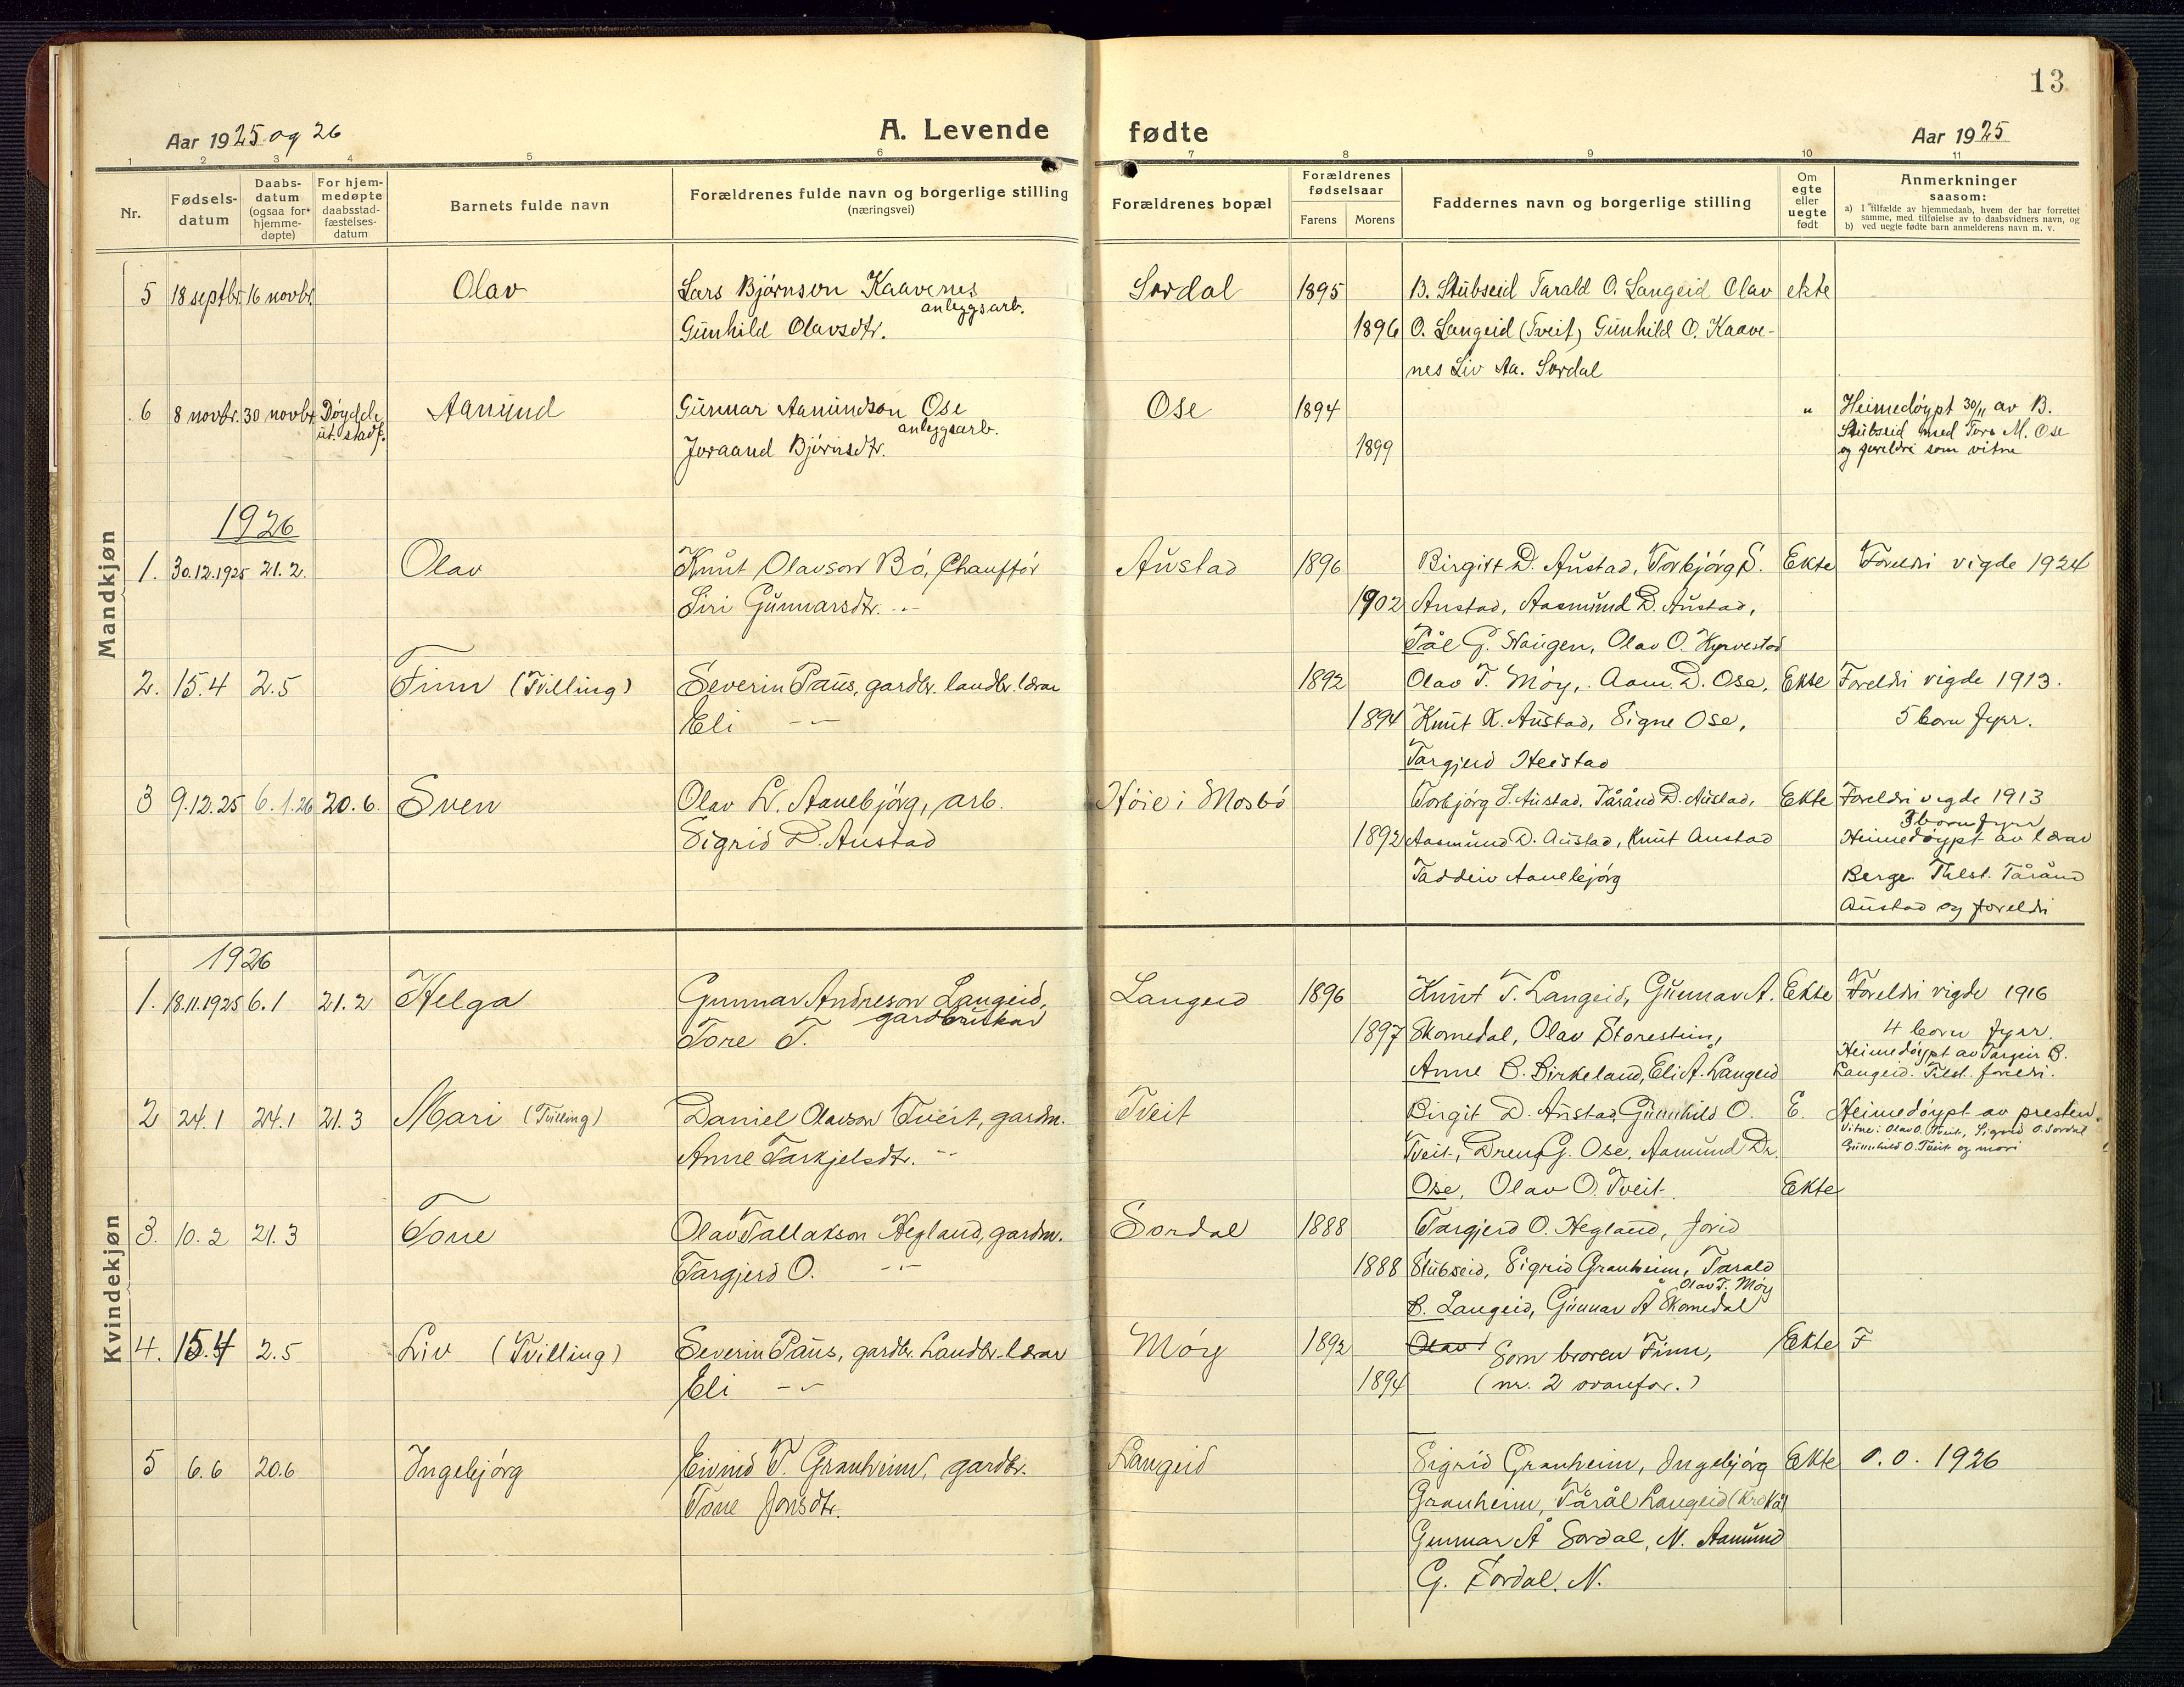 13
Aar 1925 og 26
A. Levende fødte
Aar 1925
1 2 3 4 5 6 7 8 9 10 11
Nr.
Fødsels-
datum
Daabs-
datum
(ogsaa for
hjemme-
døpte)
For hjem-
medøpte
daabsstad-
fæstelses-
datum
Barnets fulde navn
Forældrenes fulde navn og borgerlige stilling
(næringsvei)
Forældrenes bopæl
Forældrenes
fødselsaar
Farens Morens
Faddernes navn og borgerlige stilling
Om
egte
eller
uegte
født
Anmerkninger
saasom:
a) I tilfælde av hjemmedaab, hvem der har forrettet
samme, med tilføielse av to daabsvidners navn, og
b) ved uegte fødte barn anmelderens navn m. v.
Mandkjøn
5 18 septbr. 16 novbr. Olav Lars Bjørnson Kaavenes Sordal 1895 B. Stubseid Tarald O. Langeid Olav ekte
anleggsarb.
Gunhild Olavsdtr. 1896 O. Langeid (Tveit) Gunhild O. Kaave-
nes Liv Aa. Sordal
6 8 novbr. 30 novbr. Døydde Aamund Gunnar Aamundson Ose Ose 1894 " Heimedøypt 30/11 av B.
ut. stadf. anleggsarb. Stubseid med Tore M. Ose
Joraand Bjørnsdtr. 1899 og foreldri som vitne
1926
1. 30.12.1925 21.2. Olav Knut Olavson Bö, Chaufför Austad 1896 Birgit D. Austad, Torbjörg S. Ekte Foreldri vigde 1924
Siri Gunnarsdtr. -"- 1902 Austad, Aasmund D. Austad,
Pål G. Haugen, Olav O. Kyrvestad
2. 15.4 2.5 Finn (Tvilling) Severin Paus, gardbr. landbr. lærar 1892 Olav T. Møy, Aam. D. Ose, Ekte Foreldri vigde 1913.
Eli -"- 1894 Knut K. Austad, Signe Ose, 5 born fyrr.
Targjerd Heistad
3 9.12.25 6.1.26 20.6. Sven Olav L. Aanebjörg, arb. Höie i Mosbö Torbjörg S. Austad, Tårånd D. Austad, Ekte Foreldri vigde 1913
3 born fyrr
Sigrid D. Austad 1892 Aasmund D. Austad, Knut Austad Heimedøypt av lærar
Taddeiv Aanebjörg Berge. Tilst. Tårånd
Austad og foreldri
Kvindekjøn
1926
1. 18.11.1925 6.1 21.2 Helga Gunnar Andreson Langeid, Langeid 1896 Knut T. Langeid, Gunnar A. Ekte Foreldri vigde 1916
gardbrukar
Tore T. 1897 Skomedal, Olav Storestein, 4 born fyrr.
Anne B. Birkeland, Eli A. Langeid Heimedøypt av Targeir B.
Langeid. Tilst. foreldri.
2 24.1 24.1 21.3 Mari (Tvilling) Daniel Olavson Tveit, gardm. Tveit Birgit D. Austad, Gunnhild O. E. Heimedøypt av presten.
Vitne: Olav O. Tveit, Sigrid O. Sordal
Anne Tarkjelsdtr. -"- Tveit, Dreng G. Ose, Aamund Dr. Gunnhild O. Tveit og mori
Ose, Olav O. Tveit. Ekte
3. 10.2 21.3 Tone Olav Tallakson Hegland, gardm. Sordal 1888 Targjerd O. Hegland, Jorid
Targjerd O. -"- 1888 Stubseid, Sigrid Granheim, Tarald
Olav T. Møy
B. Langeid, Gunnar Å Skomedal
4. 15.4 2.5 Liv (Tvilling) Severin Paus, gardbr. Landbr.-lærar Møy 1892 Olav Som broren Finn, Ekte F
Eli -"- 1894 (nr. 2 ovanfor.)
5 6.6 20.6 Ingebjörg Eivind T. Granheim, gardbr. Langeid Sigrid Granheim, Ingebjörg Ekte 0.0. 1926
Tone Jonsdtr. Granheim, Tårål Langeid (Kroka)
Gunnar Å Sordal, N. Aamund
G. Sordal. N.